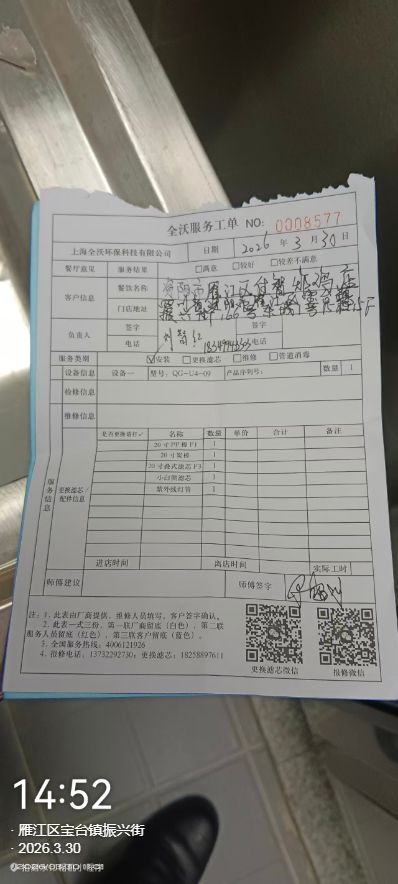 全沃服务工单 NO: 0008577
上海全沃环保科技有限公司 日期 2026 年 3 月 30 日
餐厅意见 服务结果 □满意 □较好 □较差不满意
客户信息 餐饮名称
门店地址
负责人 签字 签字
电话 电话
服务类别 ☑安装 □更换滤芯 □维修 □管道消毒
设备信息 设备一 型号: QG-U4-09 产品序列号: 数量 1
检修信息
维修信息
服务信息 更换滤芯/配件信息
是否更换请打✓ 名称 数量 单价 合计 备注
20寸PP棉F1 1
20寸炭棒 1
20寸叠式滤芯F3 1
紫外线灯管 1
进店时间 离店时间 实际工时
师傅建议 师傅签字
注: 1. 此表由厂商提供、维修人员填写、客户签字确认。
2. 此表一式三份、第一联厂商留底(白色)、第二联
服务人员留底(红色)、第三联客户留底(蓝色)。
3. 全国服务热线: 4006121926
4. 报修电话: 13732292730; 更换滤芯: 18258897611
更换滤芯微信 报修微信
14:52
· 雁江区宝台镇振兴街
· 2026.3.30